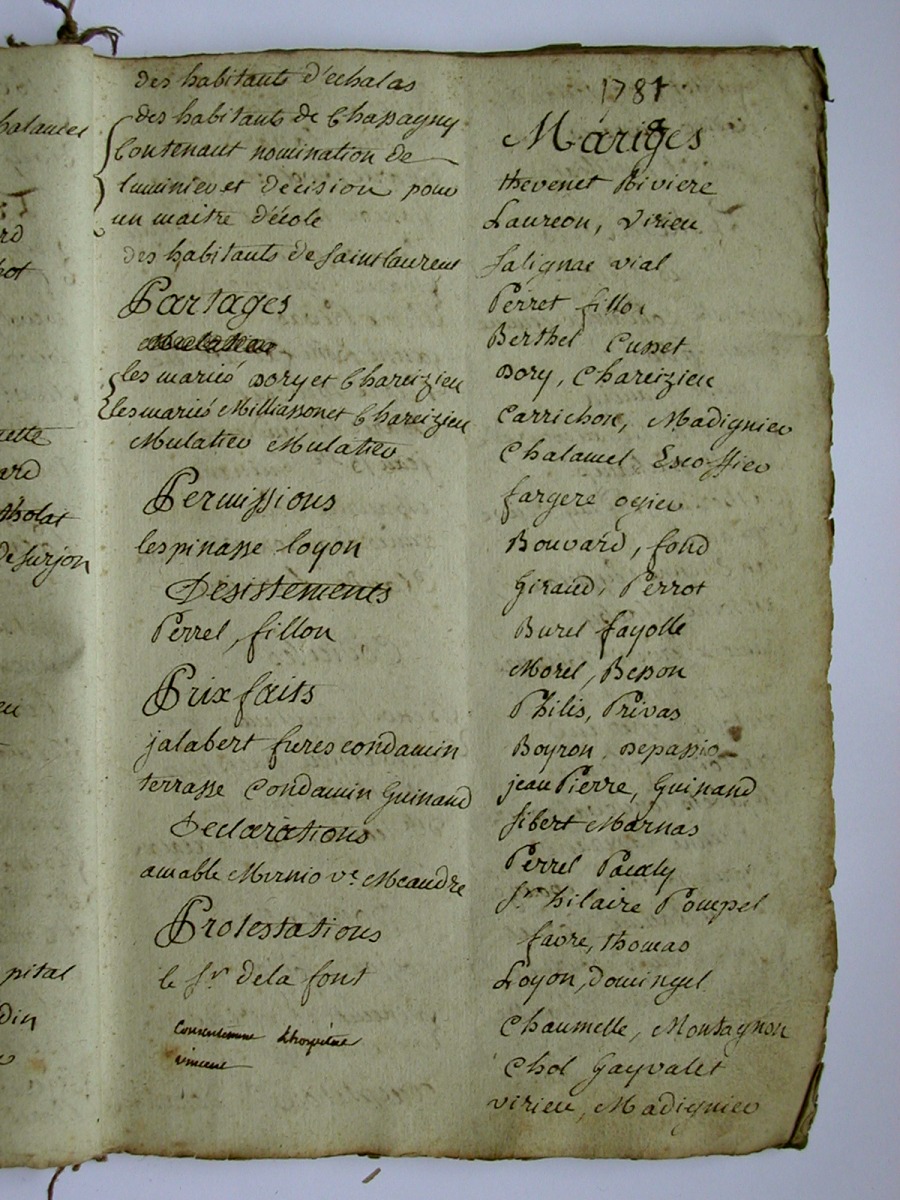 des habitants d'echalas
des habitants de Chassagny
Contenant nomination de
luminier et décision pour
un maitre d'école
des habitants de Saint laurent
Partages
les mariés Dory et Chareizieu
les mariés Milliasson et Chareizieu
Mulatier Mulatier
Permissions
lespinasse loyon
Désistements
Perrel, fillon
Prix faits
jalabert furet condamin
terrasse Condamin Guinand
Déclarations
amable Mernio ve Meandre
Protestations
le Sr dela font
vincent
1781
Mariges
thevenet Riviere
Laureon, Virieu
Salignac vial
Perret fillon
Berthel Cusset
Dory, Chareizieu
Carrichon, Madignier
Chalamel Escoffier
fargere ogier
Bouvard, fond
Giraud, Perrot
Burel fayolle
Morel, Besson
Philis, Privas
Boyron, Depassio
jean Pierre, Guinand
Sibert Marnas
Perrel Pacaly
St hilaire Pompel
favre, thomas
Loyon, Domingel
Chaumelle, Montagnon
Chol Gayvalet
virieu, Madignier
halancel
rd
hot
ard
tholat
de surjon
pital
din